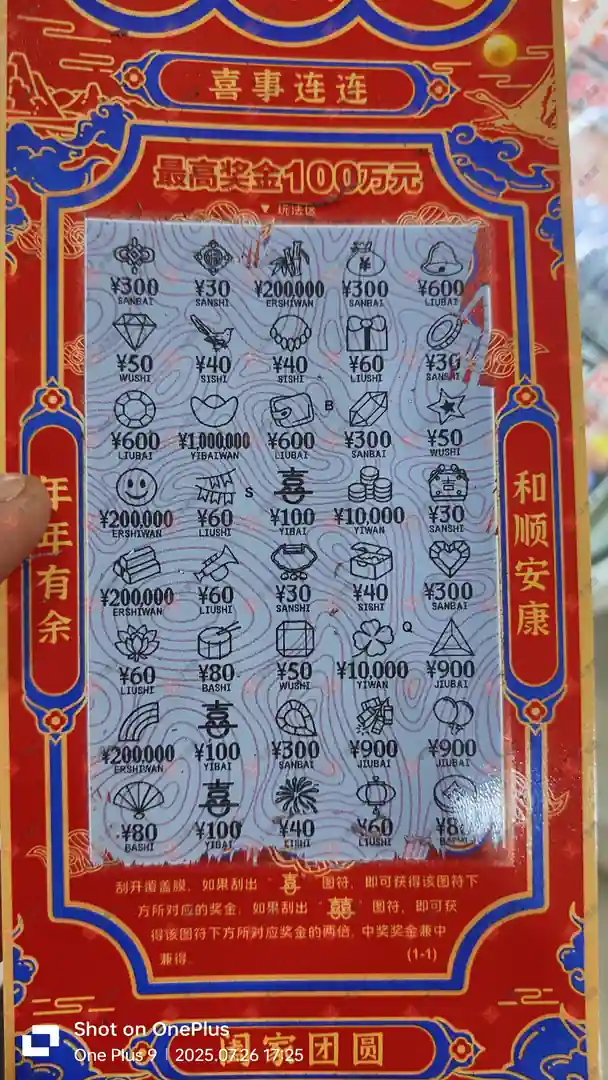 喜事连连
最高奖金100万元
▼ 玩法区
¥300 ¥30 ¥200,000 ¥300 ¥600
SANBAI SANSHI ERSHIWAN SANBAI LIUBAI
¥50 ¥40 ¥40 ¥60 ¥30
WUSHI SISHI SISHI LIUSHI SANSHI
B
¥600 ¥1,000,000 ¥600 ¥300 ¥50
LIUBAI YIBAIWAN LIUBAI SANBAI WUSHI
S 喜 吉
¥200,000 ¥60 ¥100 ¥10,000 ¥30
ERSHIWAN LIUSHI YIBAI YIWAN SANSHI
¥200,000 ¥60 ¥30 ¥40 ¥300
ERSHIWAN LIUSHI SANSHI SISHI SANBAI
Q
¥60 ¥80 ¥50 ¥10,000 ¥900
LIUSHI BASHI WUSHI YIWAN JIUBAI
喜
¥200,000 ¥100 ¥300 ¥900 ¥900
ERSHIWAN YIBAI SANBAI JIUBAI JIUBAI
喜
¥80 ¥100 ¥40 ¥60 ¥8
BASHI YIBAI SISHI LIUSHI
年年有余
和顺安康
刮开覆盖膜，如果刮出“喜”图符，即可获得该图符下
方所对应的奖金，如果刮出“囍”图符，即可获
得该图符下方所对应奖金的两倍，中奖奖金兼中
兼得。 (1-1)
阖家团圆
Shot on OnePlus
One Plus 9 | 2025.07.26 17:25